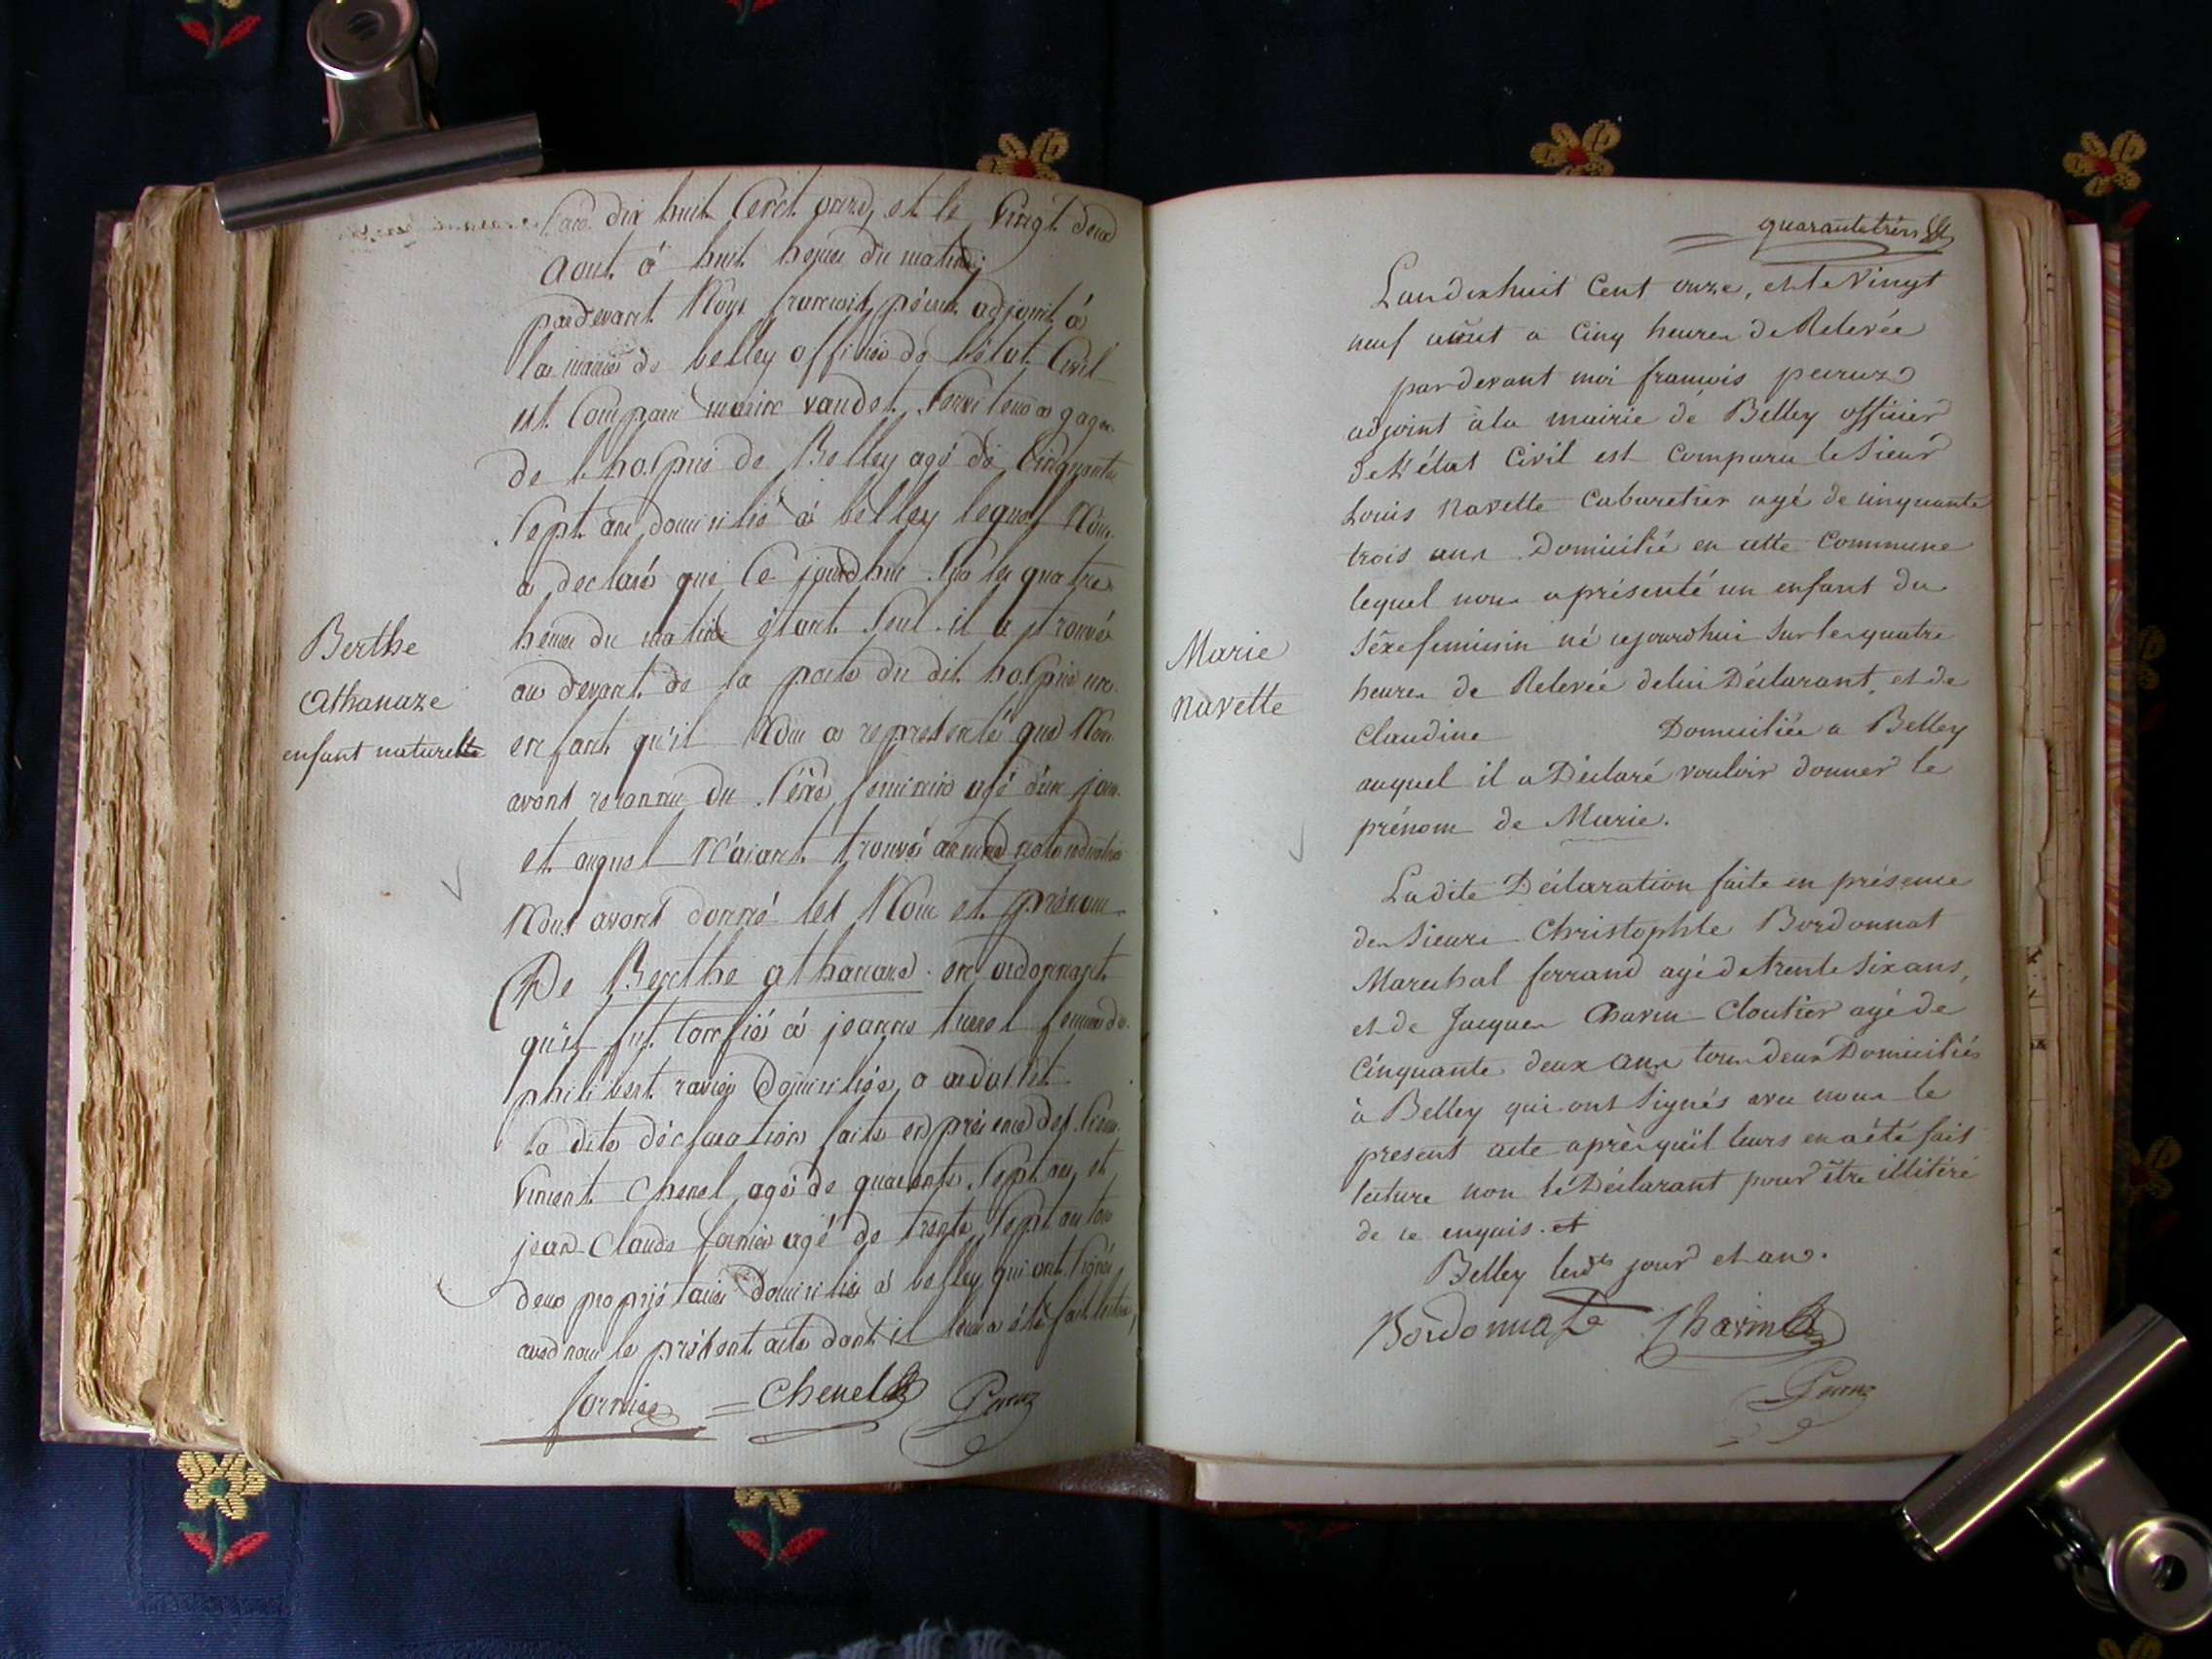 L'an dix huit Cent onze, et le Vingt deux
aout à huit heures du matin
pardevant Nous francois péruz adjoint à
la mairie de belley officier de l'état Civil
est Comparu vaudet Serviteur a gages
de l'hospice de Belley agé de Cinquante
Sept ans domicilié à belley lequel Nous
a declaré que Ce jourdhui Sur les quatre
heures du matin étant Seul il a trouvé
au devant de la porte du dit hospice un
enfant qu'il Nous a representé que Nous
avons reconnu du Séxe feminin agé d'un jour
et auquel N'aiant trouvé aucune note
Nous avons donné les Nom et prénom
De Berthe athanaze en ordonnant
qu'il fut Confié à jeanne turrel femme de
philibert ravier Domiciliée a
la dite déclaration faite en présence des Sieurs
Vincent Chenel agé de quarente Sept ans et
jean Claude fornier agé de trente Sept ans tous
deux propriétaires domiciliés à belley qui ont Signés
avec nous le présent acte dont il leur a été fait lecture
fornier Chenel Peruz
Berthe
Athanaze
enfant naturelle
quarante trois
L'an dix huit Cent onze, et le Vingt
neuf aout a Cinq heures de Relevée
pardevant moi francois peruz
adjoint à la mairie de Belley officier
de L'état Civil est Comparu le Sieur
Louis Navette Cabaretier agé de cinquante
trois ans Domicilié en cette Commune
lequel nous a présenté un enfant du
Sêxe feminin né cejourdhui Sur les quatre
heures de Relevée de lui Déclarant, et de
Claudine Domiciliée a Belley
auquel il a Déclaré vouloir donner le
prénom de Marie.
Ladite Déclaration faite en présence
des Sieurs Christophle Bordonnat
Marechal ferrand agé de trente Six ans,
et de Jacques Charin Cloutier agé de
Cinquante deux ans tous deux Domiciliés
à Belley qui ont Signés avec nous le
present acte après qu'il leurs en a été fait
lecture non le Déclarant pour être illitéré
de ce enquis. et
Belley lesdts jour et an.
Bordonnat Charin
Peruz
Marie
Navette